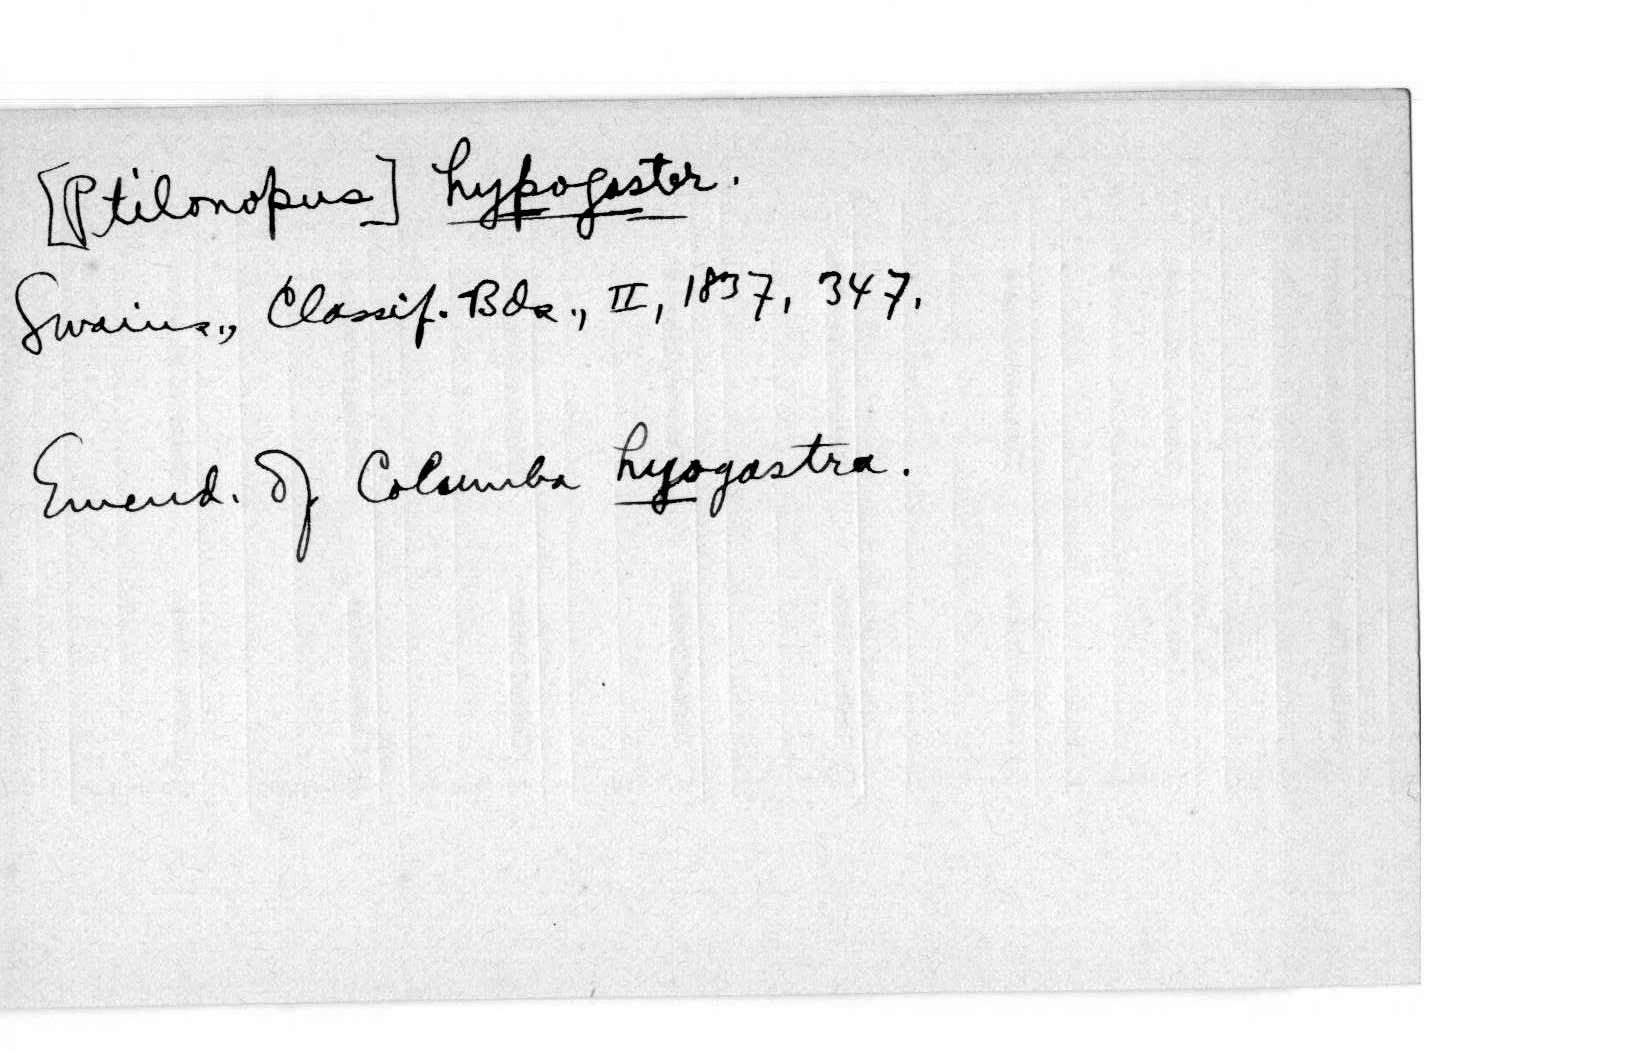 [Ptilonopus] hypogaster.
Swains., Classif. Bds., II, 1837, 347.
Emend. of Columba hyogastra.